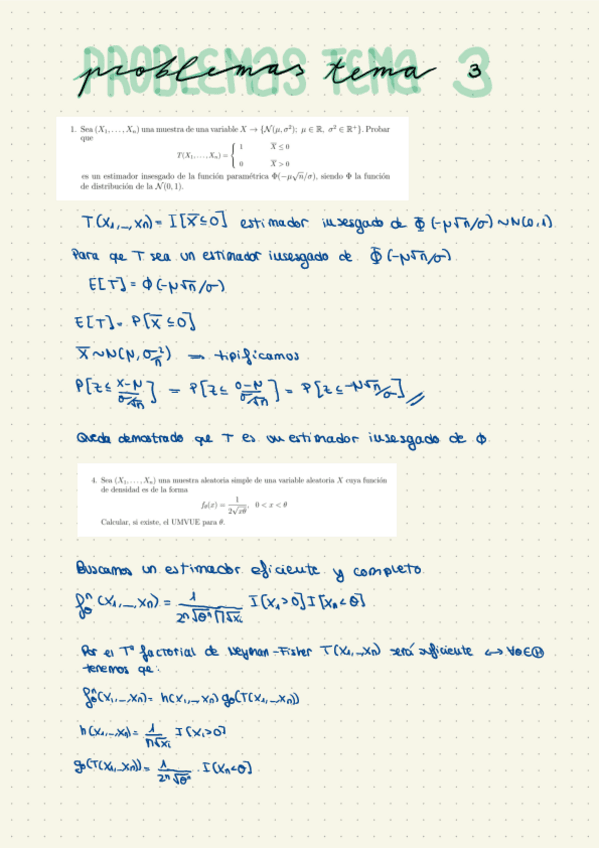 problemas tema 3
1. Sea (X₁, . . . , Xₙ) una muestra de una variable X → {N(μ, σ²); μ ∈ ℝ, σ² ∈ ℝ⁺}. Probar
que
T(X₁, . . . , Xₙ) = { 1   X̅ ≤ 0
0   X̅ > 0
es un estimador insesgado de la función paramétrica Φ(−μ√n/σ), siendo Φ la función
de distribución de la N(0, 1).
T(X₁,_,Xn) = I[X̅≤0] estimador insesgado de Φ(-μ√n/σ) ~ N(0,1).
Para que T sea un estimador insesgado de Φ(-μ√n/σ).
E[T] = Φ(-μ√n/σ)
E[T] = P[X̅ ≤ 0]
X̅ ~ N(μ, σ²/n) ⟶ tipificamos
P[Z ≤ (X̅-μ)/(σ/√n)] = P[Z ≤ (0-μ)/(σ/√n)] = P[Z ≤ -μ√n/σ] //
Queda demostrado que T es un estimador insesgado de Φ
4. Sea (X₁, . . . , Xₙ) una muestra aleatoria simple de una variable aleatoria X cuya función
de densidad es de la forma
f_θ(x) = 1/(2√(xθ)), 0 < x < θ
Calcular, si existe, el UMVUE para θ.
Buscamos un estimador eficiente y completo.
f_θⁿ(X₁,_,Xn) = 1/(2ⁿ√θⁿ ∏√xᵢ) I[X₁>0] I[Xn<θ]
Por el Tª factorial de Neyman-Fisher T(X₁,_,Xn) será suficiente ⟷ ∀θ∈Θ
tenemos que:
f_θⁿ(X₁,_,Xn) = h(X₁,_,Xn) g_θ(T(X₁,_,Xn))
h(X₁,_,Xn) = 1/∏√xᵢ I[X₁>0]
g_θ(T(X₁,_,Xn)) = 1/(2ⁿ√θⁿ) · I[Xn<θ]